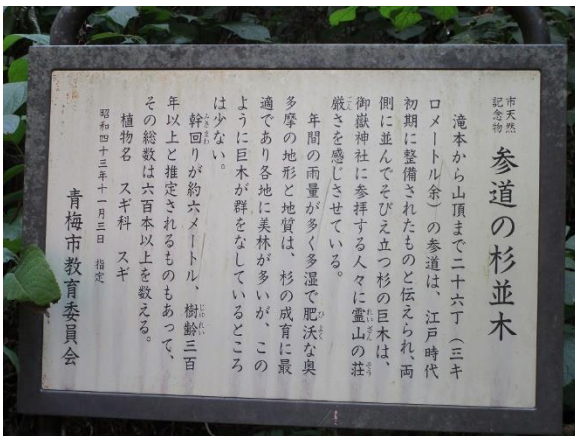 市天然
記念物
参道の杉並木
滝本から山頂まで二十六丁(三キ
ロメートル余)の参道は、江戸時代
初期に整備されたものと伝えられ、両
側に並んでそびえ立つ杉の巨木は、
御嶽神社に参拝する人々に霊山の荘
厳さを感じさせている。
年間の雨量が多く多湿で肥沃な奥
多摩の地形と地質は、杉の成育に最
適であり各地に美林が多いが、この
ように巨木が群をなしているところ
は少ない。
幹回りが約六メートル、樹齢三百
年以上と推定されるものもあって、
その総数は六百本以上を数える。
植物名 スギ科 スギ
昭和四十三年十一月三日 指定
青梅市教育委員会